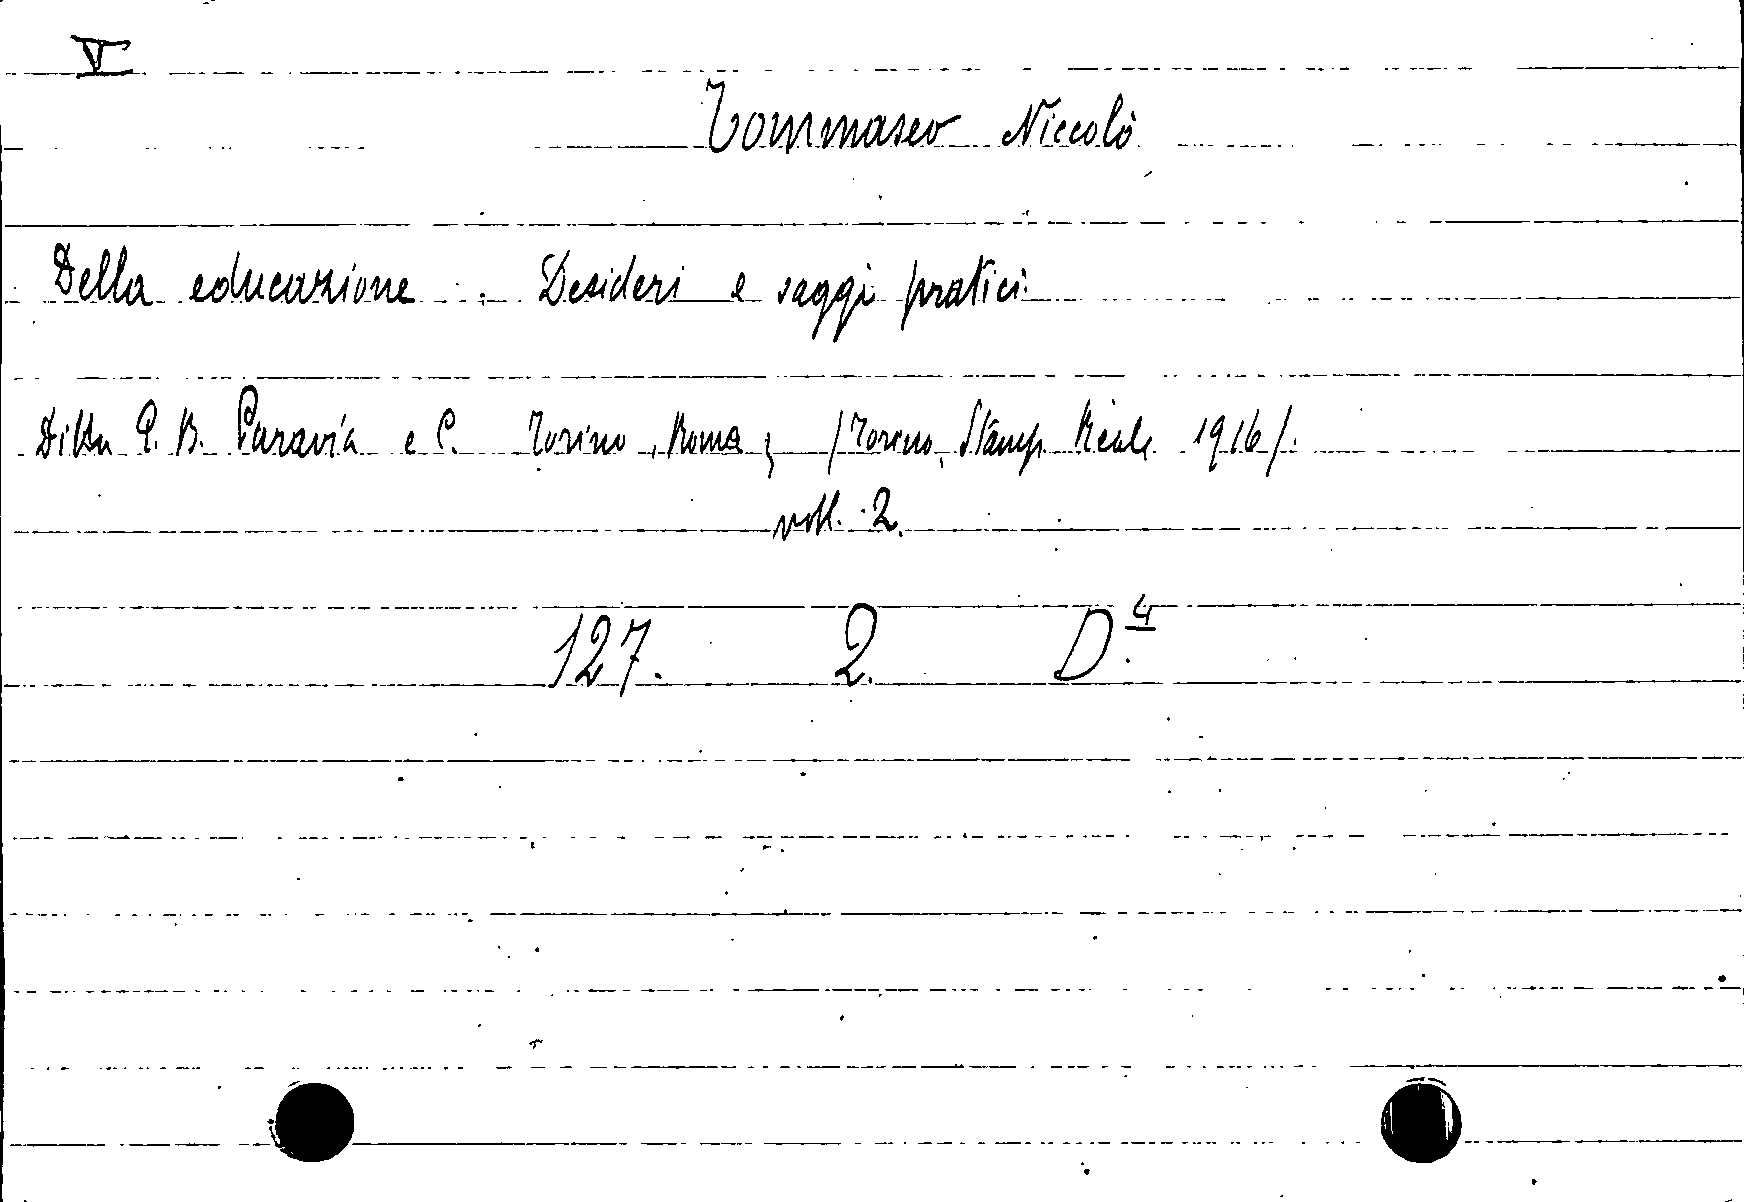 V
Tommaseo Niccolò
Della educazione. Desideri e saggi pratici.
Ditta G. B. Paravia e C. Torino, Roma; /Torino, Stamp. Reale 1916/.
voll. 2.
127. 2. D.4